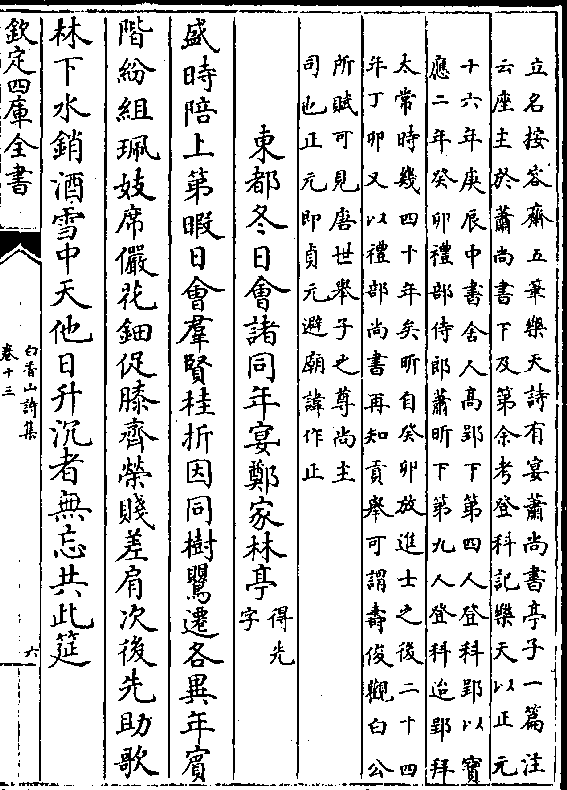 立名按容齋五筆樂天詩有宴蕭尚書亭子一篇注
云座主於蕭尚書下及第余考登科記樂天以正元
十六年庚辰中書舍人高郢下第四人登科郢以寶
應二年癸卯禮部侍郎蕭昕下第九人登科迨郢拜
太常時幾四十年矣昕自癸卯放進士之後二十四
年丁卯又以禮部尚書再知貢舉可謂壽俊觀白公
所賦可見唐世舉子之尊尚主
司也正元即貞元避廟諱作正
東都冬日會諸同年宴鄭家林亭
得先
字
盛時陪上第暇日會羣賢桂折因同樹鶯遷各異年賓
階紛組珮妓席儼花鈿促膝齊榮賤差肩次後先助歌
林下水銷酒雪中天他日升沉者無忘共此筵
欽定四庫全書
白香山詩集
卷十三
六